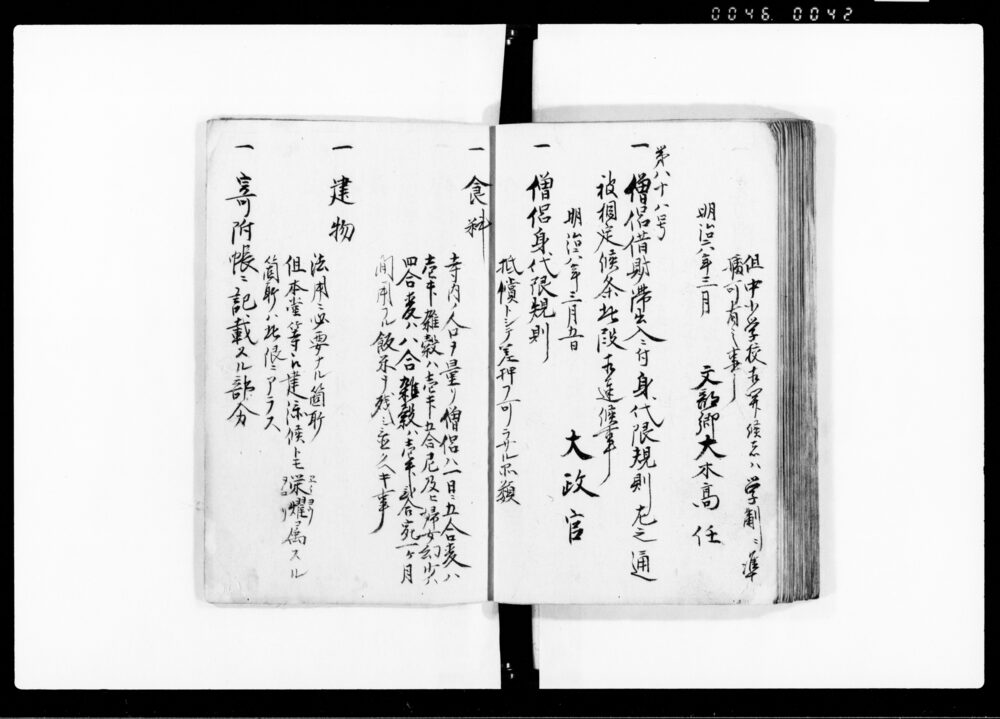 0046 0042
但中小学校相開候者ハ学制ニ準
備可有之事
明治六年三月
文部卿大木高任
第八十八号
一 僧侶借財滞出入ニ付身代限規則左之通
被相定候条此段相達候事
明治六年三月五日
大政官
一 僧侶身代限規則
抵償トシテ差押フ可ラサル品類
一 食料
寺内ノ人口ヲ量リ僧侶ハ一日ニ五合麦ハ
壱升雑穀ハ壱升五合尼及ヒ婦女幼少ハ
四合麦ハ八合雑穀ハ壱升弐合宛一ヶ月
間用フル飯米ヲ残シ置クヘキ事
一 建物
法用ニ必要ナル箇所
但本堂等ニ建添候トモ栄耀ニ属スル
箇所ハ此限ニアラス
一 寄附帳ニ記載スル部分